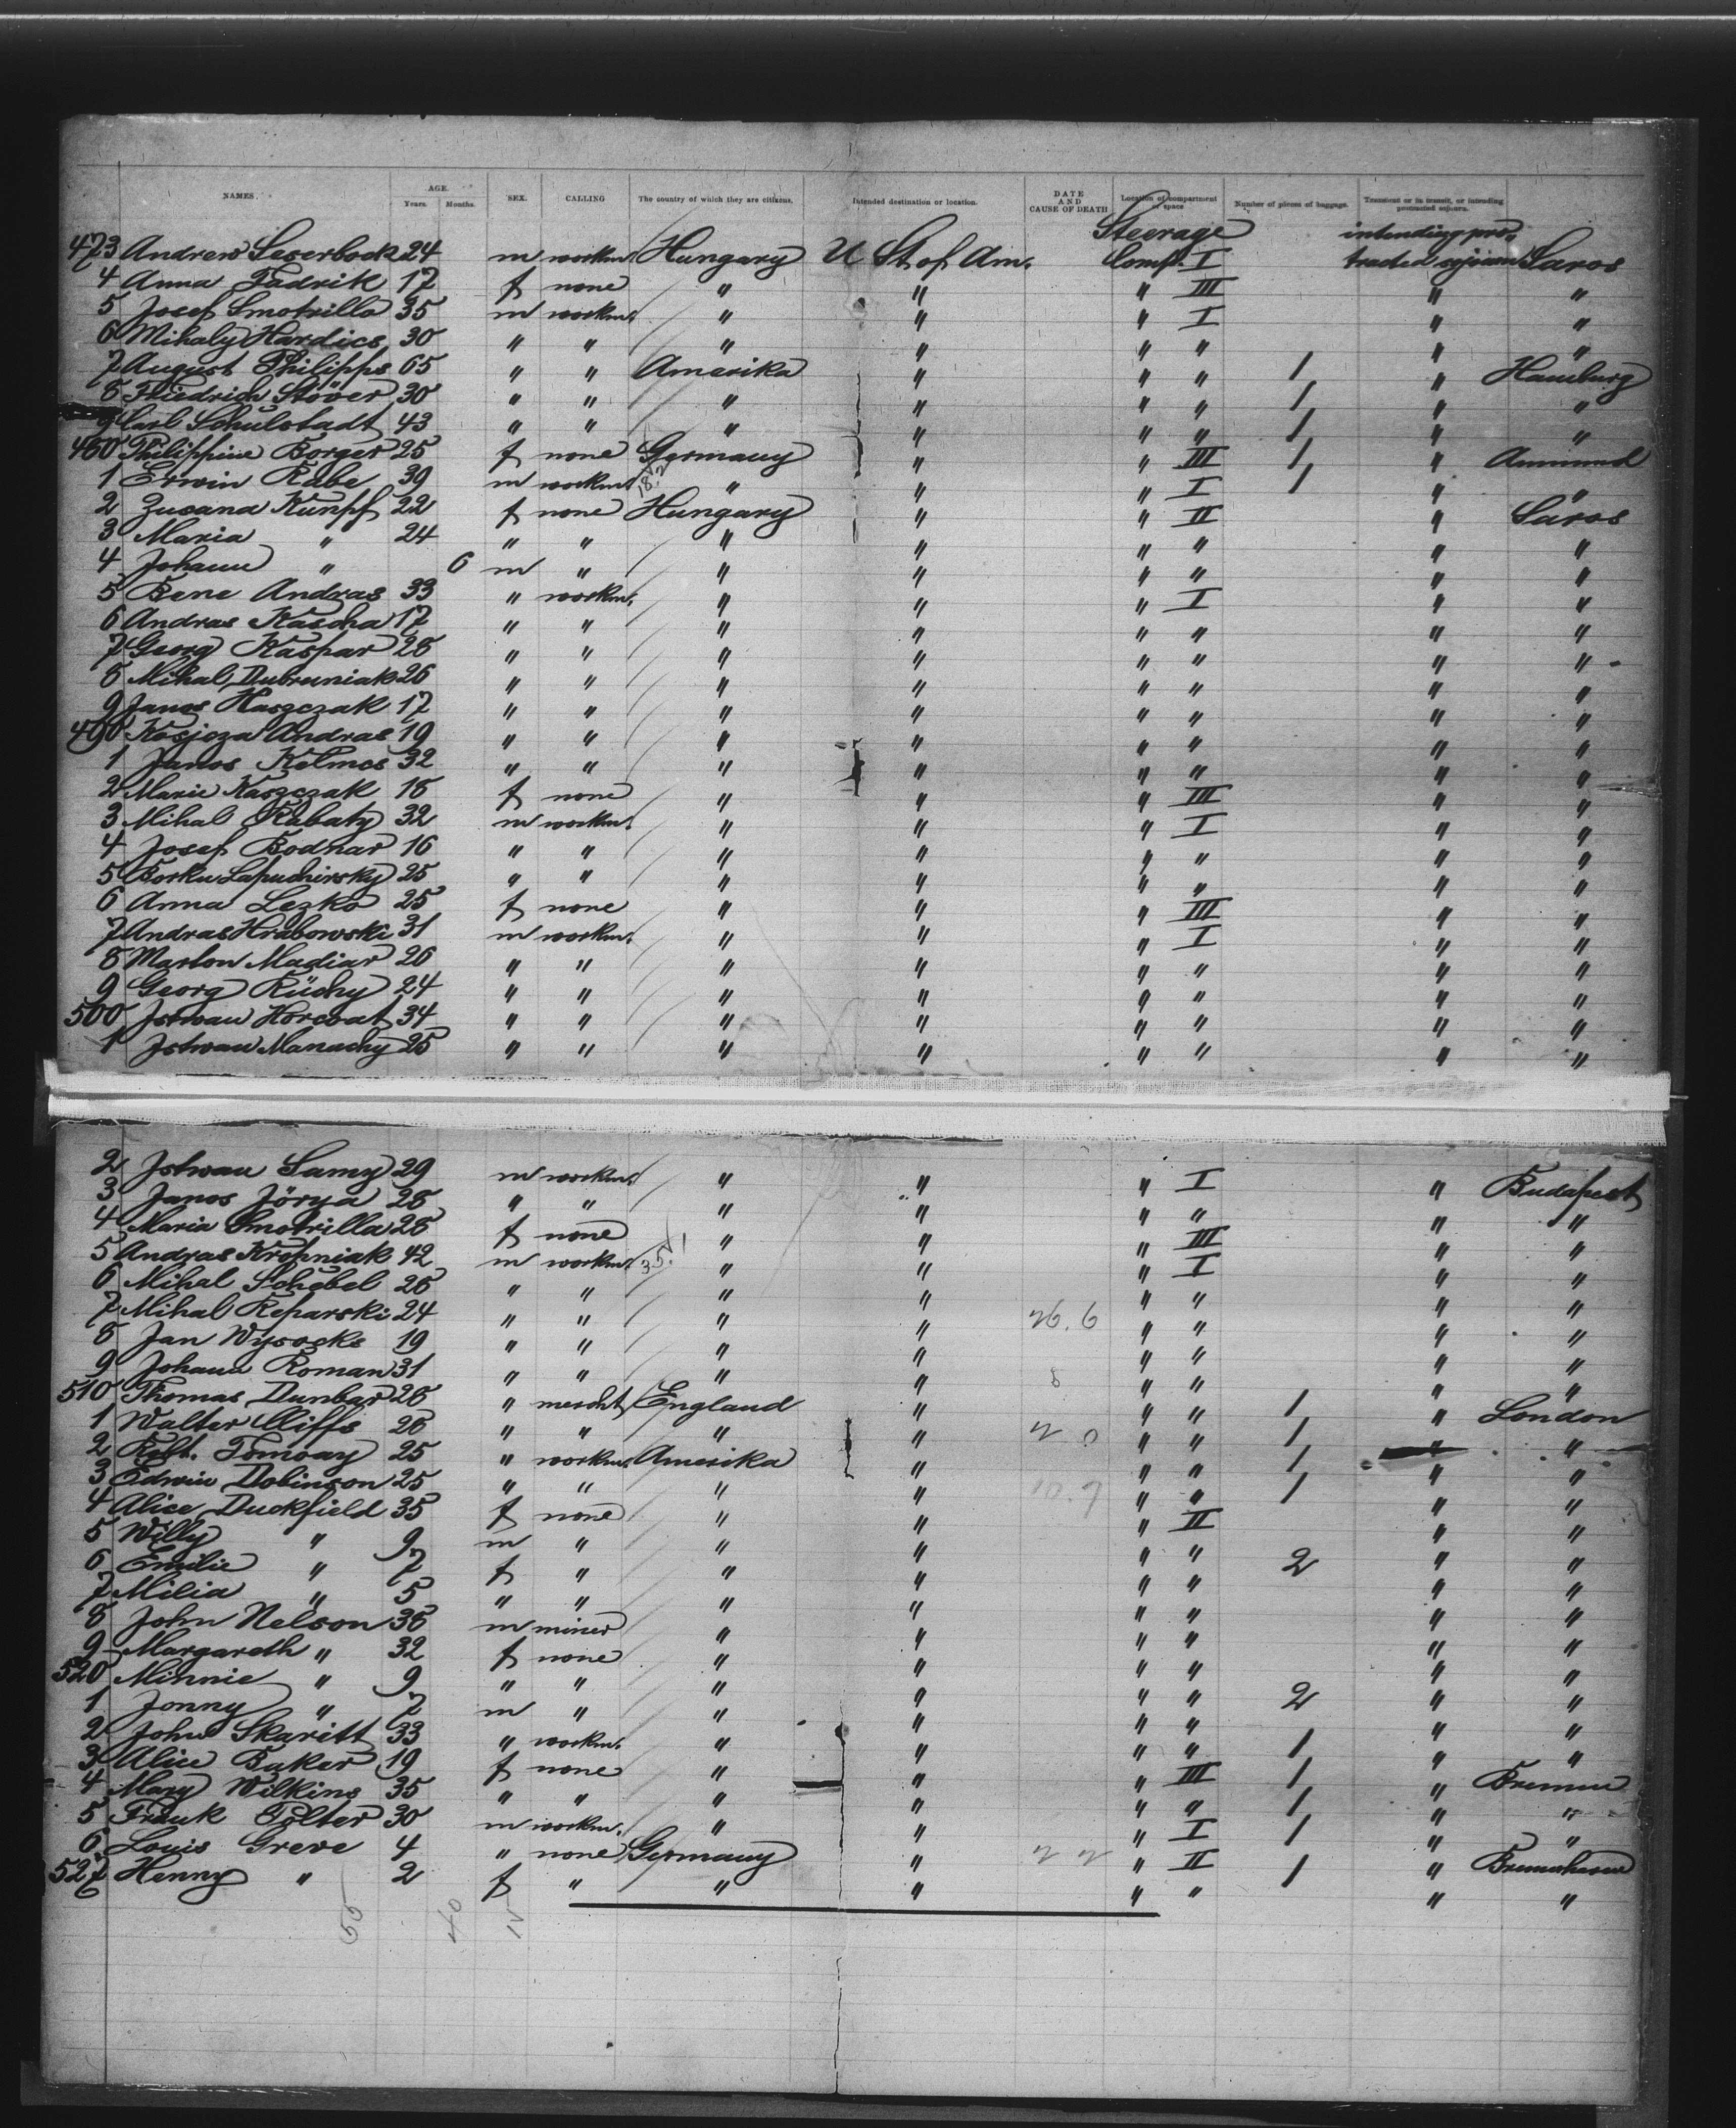 NAMES. AGE. Years. Months. SEX. CALLING The country of which they are citizens. Intended destination or location. DATE AND CAUSE OF DEATH Location of compartment or space Number of pieces of baggage. Transient or in transit, or intending protracted sojourn.
473 Andrew Leserbock 24 m workm. Hungary U St of Am. Steerage Comp. I intending protracted sojourn Saros
4 Anna Fadrik 17 f none " " " III " "
5 Josef Smotrilla 35 m workm. " " " I " "
6 Mihaly Hardics 30 " " " " " " " "
7 August Philipps 65 " " Amerika " " " 1 " Hamburg
8 Friedrich Stöver 30 " " " " " " 1 " "
9 Carl Schulstadt 43 " " " " " " 1 " "
480 Philippine Borger 25 f none Germany " " III 1 "
1 Erwin Rabe 39 m workm. " " " I 1 " "
2 Zusana Kumpf 22 f none Hungary " " II " Saros
3 Maria " 24 " " " " " " " "
4 Johann " 6 m " " " " " " "
5 Bene Andras 33 " workm. " " " I " "
6 Andras Kascha 17 " " " " " " " "
7 Georg Kaspar 28 " " " " " " " "
8 Mihal Dubruniak 26 " " " " " " " "
9 Janos Haszczak 17 " " " " " " " "
490 Kosjoza Andras 19 " " " " " " " "
1 Janos Kelmes 32 " " " " " " " "
2 Marie Kaszczak 18 f none " " " III " "
3 Mihal Rabaty 32 m workm. " " " I " "
4 Josef Bodnar 16 " " " " " " " "
5 Borku Lapuchirsky 25 " " " " " " " "
6 Anna Lezko 25 f none " " " III " "
7 Andras Hrabowski 31 m workm. " " " I " "
8 Marton Madiar 26 " " " " " " " "
9 Georg Rüchy 24 " " " " " " " "
500 Jstwan Horcoat 34 " " " " " " " "
1 Jstwan Manachy 25 " " " " " " " "
2 Jstwan Samy 29 m workm. " " " I " Budapest
3 Janos Jörya 28 " " " " " " " "
4 Maria Smotrilla 28 f none " " " III " "
5 Andras Krepniak 42 m workm. " " " I " "
6 Mihal Schebel 26 " " " " " " " "
7 Mihal Reparski 24 " " " " " " " "
8 Jan Wysocke 19 " " " " " " " "
9 Johann Roman 31 " " " " " " " "
510 Thomas Dunbar 28 " mercht England " " " 1 " London
1 Walter Cliffs 26 " " " " " " 1 " "
2 Robt. Tomoay 25 " workm. Amerika " " " 1 " "
3 Edwin Dobinson 25 " " " " " " 1 " "
4 Alice Duckfield 35 f none " " " II " "
5 Willy " 9 m " " " " " " "
6 Emilie " 7 f " " " " " 2 " "
7 Milia " 5 " " " " " " " "
8 John Nelson 38 m miner " " " " " "
9 Margareth " 32 f none " " " " " "
520 Minnie " 9 " " " " " " " "
1 Jonny " 7 m " " " " " 2 " "
2 John Skaritt 33 " workm. " " " " 1 " "
3 Alice Baker 19 f none " " " III 1 " Bremen
4 Mary Wilkins 35 " " " " " " 1 " "
5 Frank Tölter 30 m workm. " " " I 1 " "
6 Louis Greve 4 " none Germany " " II 1 " Bremerhaven
527 Henny " 2 f " " " " " " "